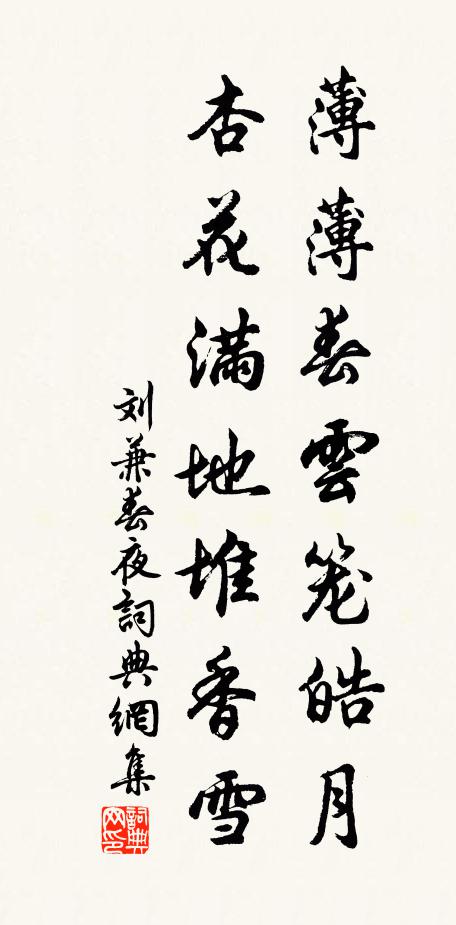 薄薄春雲笼皓月
杏花满地堆香雪
刘兼春夜詞典網集
詞典网印